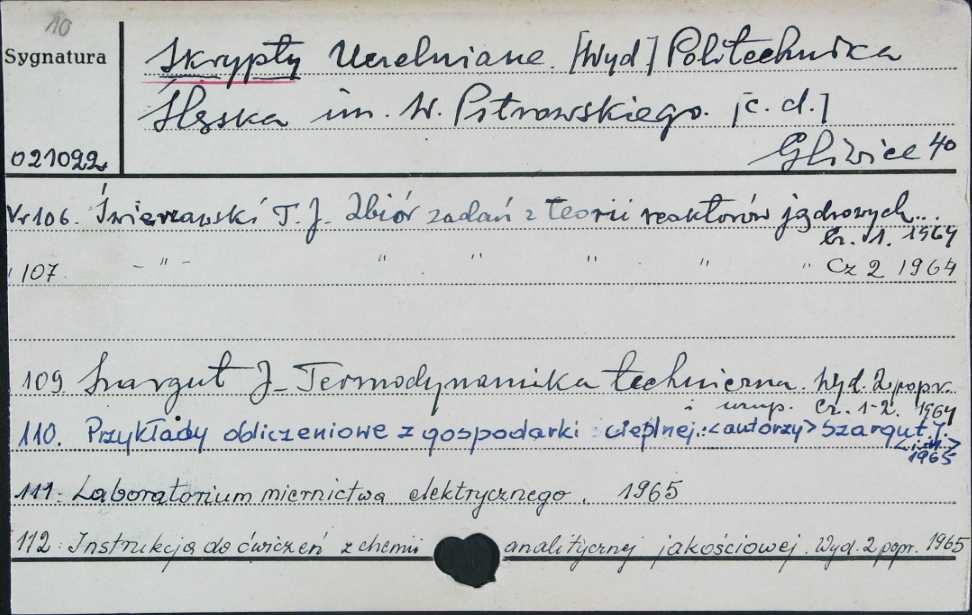 10
Sygnatura
Skrypty Uczelniane. [Wyd] Politechnika
Śląska im. W. Pstrowskiego. [c. d.]
021092
Gliwice 40
Nr 106. Świerzawski T. J. Zbiór zadań z teorii reaktorów jądrowych...
Cz. 1. 1964
107 - " - " " " " " Cz 2 1964
109. Szargut J. Termodynamika techniczna. Wyd. 2 popr.
i uzup. Cz. 1-2. 1964
110. Przykłady obliczeniowe z gospodarki cieplnej. <autorzy> Szargut J.
<i in.>
1965
111. Laboratorium miernictwa elektrycznego. 1965
112. Instrukcja do ćwiczeń z chemii analitycznej jakościowej. Wyd. 2 popr. 1965